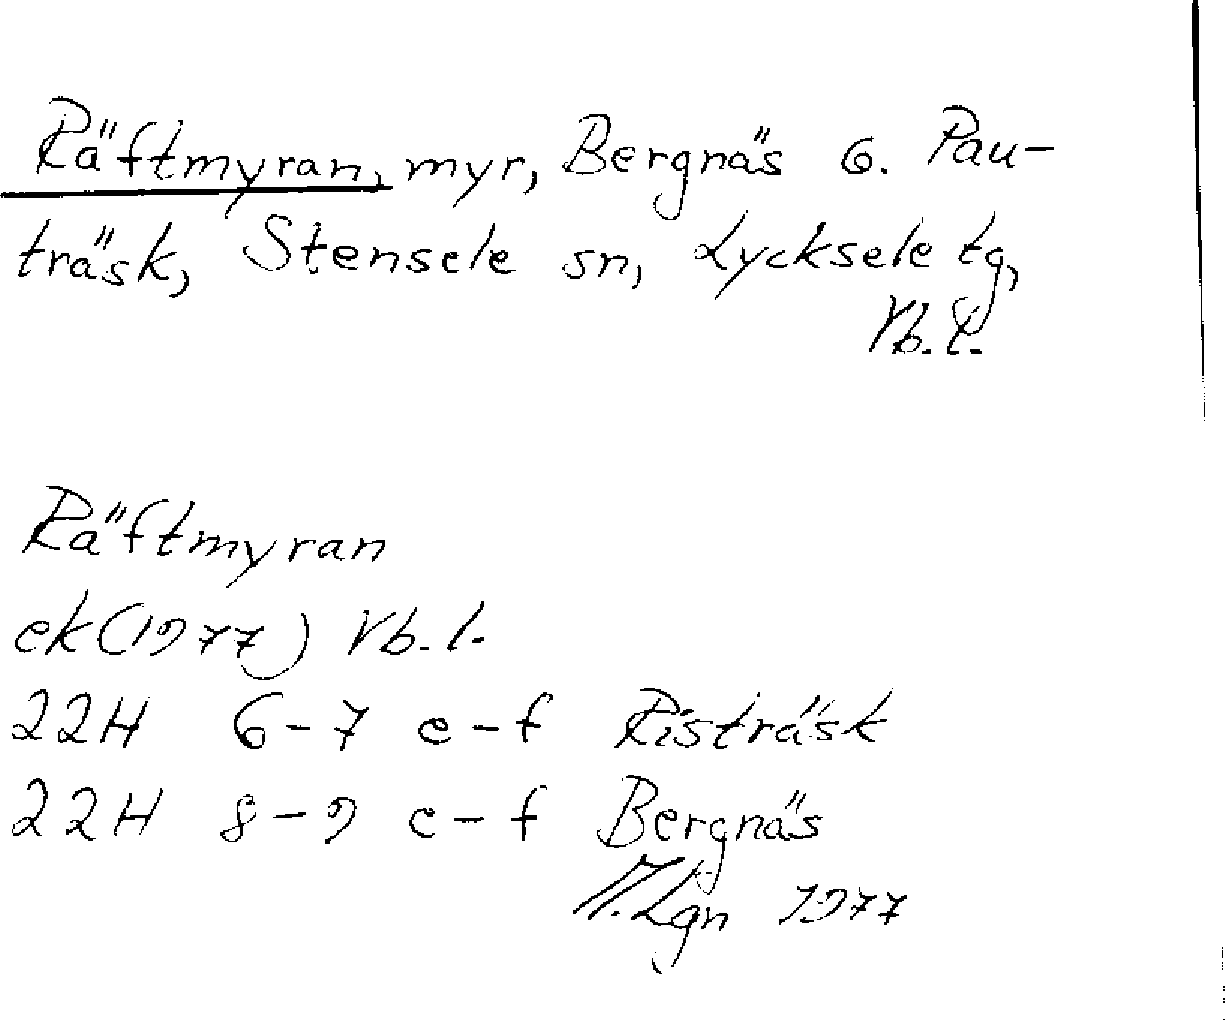 Räftmyran, myr, Bergnäs 6. Pau-
träsk, Stensele sn, Lycksele tg,
Vb.l.
Räftmyran
ek(1977) Vb.l.
22H 6-7 e-f Risträsk
22H 8-9 e-f Bergnäs
Lgn 1977